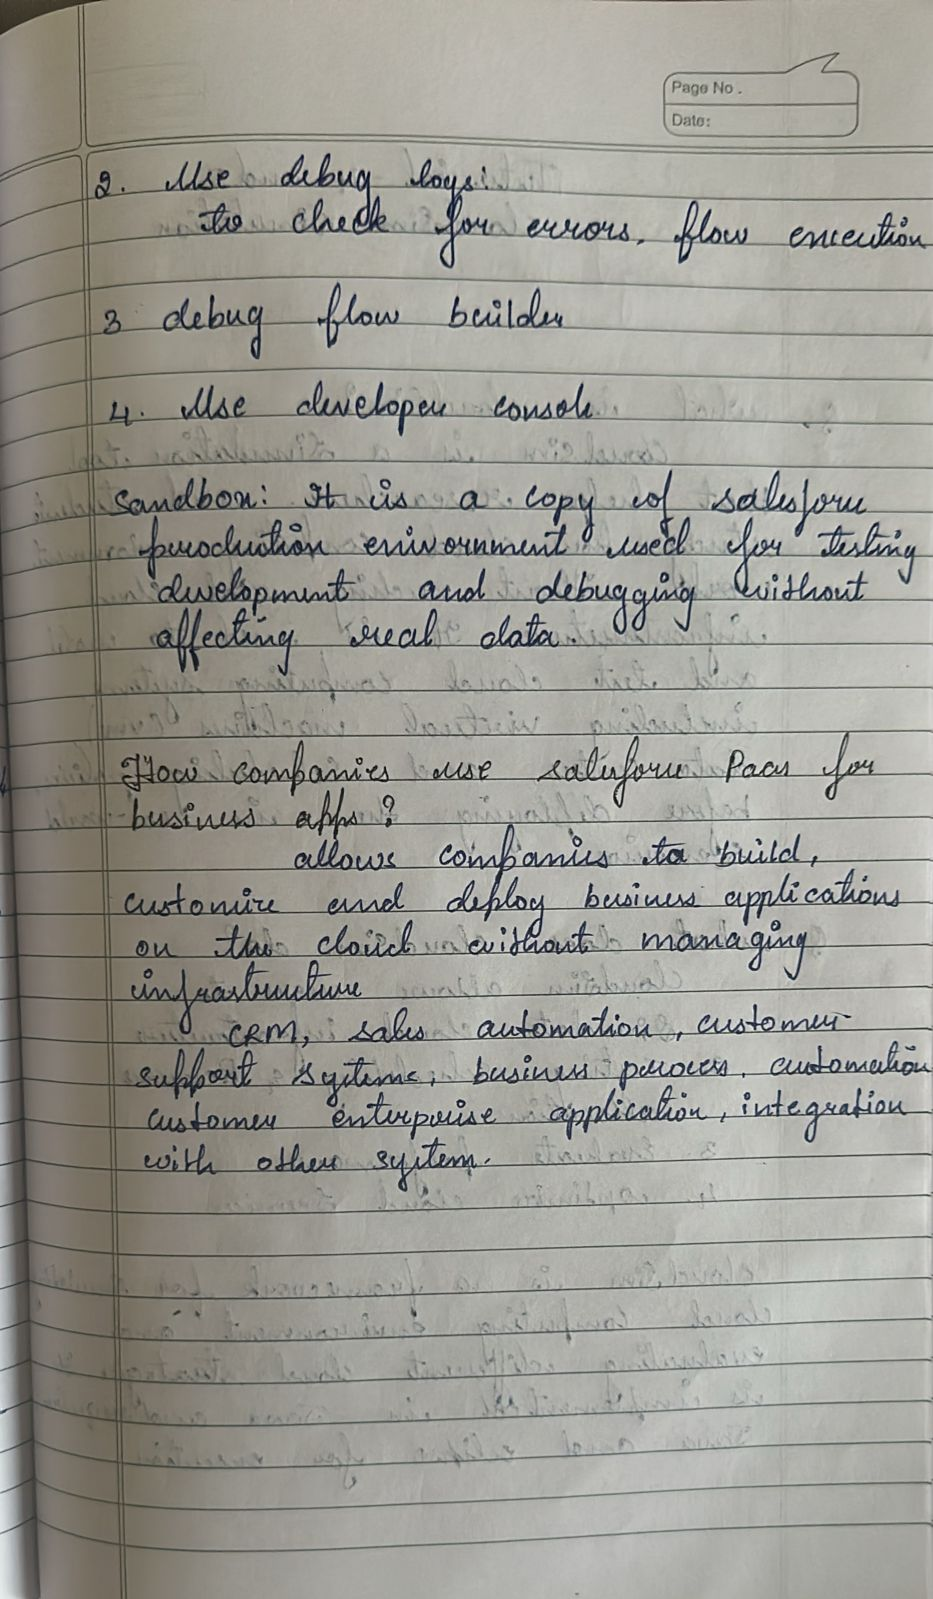 Page No.
Date:
2. Use debug logs:
to check for errors, flow execution
3 debug flow builder
4. Use developer console
Sandbox: It is a copy of salesforce
production environment used for testing
development and debugging without
affecting real data.
How companies use salesforce Paas for
business apps?
allows companies to build,
customize and deploy business applications
on the cloud without managing
infrastructure
CRM, sales automation, customer
support systems, business process, automation
customer enterprise application, integration
with other system.